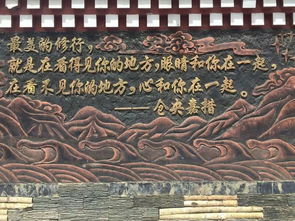 最美的修行，
就是在看得见你的地方，眼睛和你在一起，
在看不见你的地方，心和你在一起。
——仓央嘉措